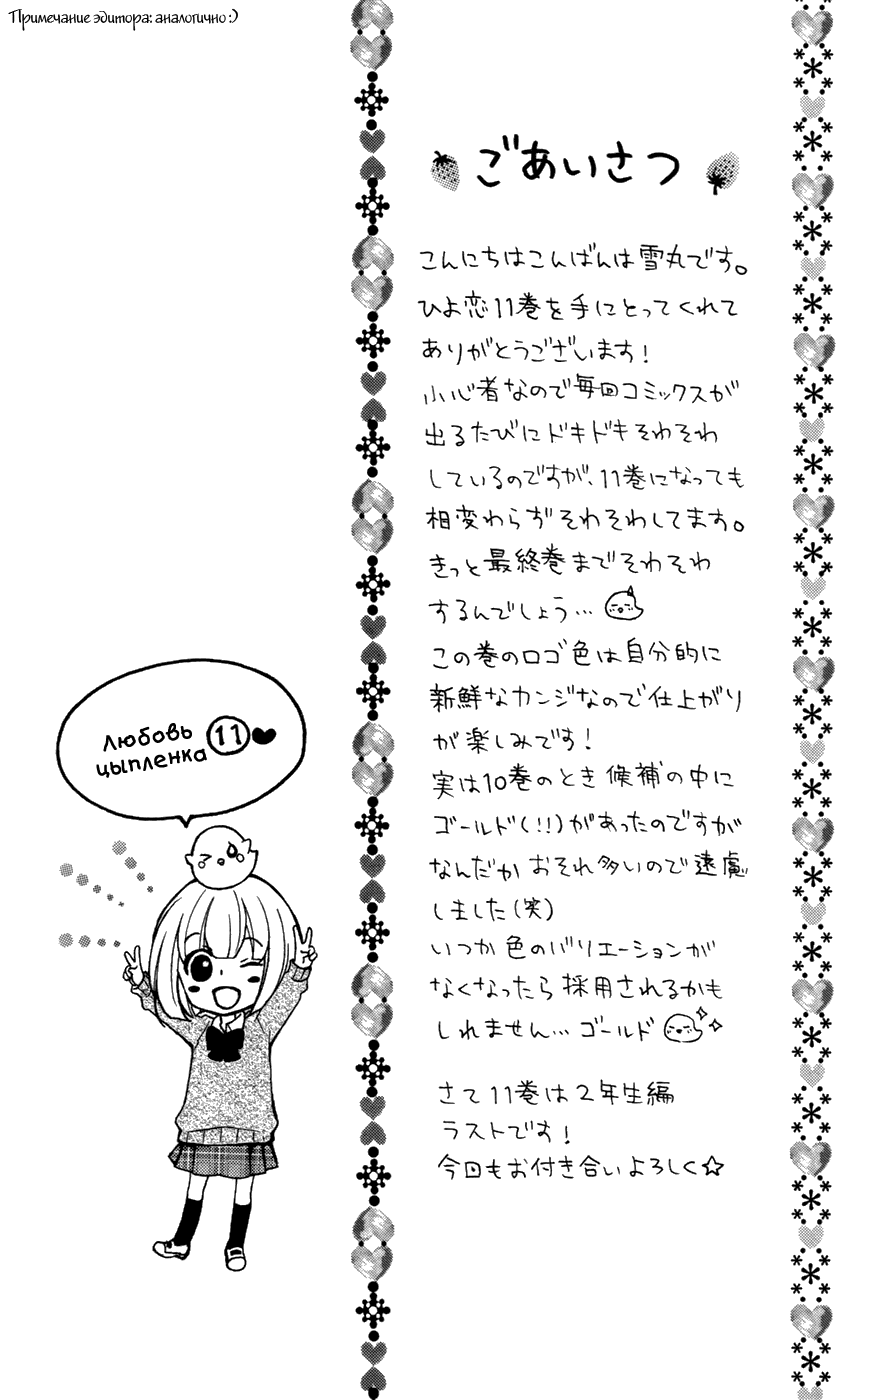 Примечание эдитора: аналогично :)
ごあいさつ
こんにちはこんばんは雪丸です。
ひよ恋11巻を手にとってくれて
ありがとうございます!
小心者なので毎回コミックスが
出るたびにドキドキそわそわ
しているのですが、11巻になっても
相変わらずそわそわしてます。
きっと最終巻までそわそわ
するんでしょう…
この巻のロゴ色は自分的に
新鮮なカンジなので仕上がり
が楽しみです!
実は10巻のとき候補の中に
ゴールド(!!)があったのですが
なんだかおそれ多いので遠慮
しました(笑)
いつか色のバリエーションが
なくなったら採用されるかも
しれません…ゴールド
さて11巻は2年生編
ラストです!
今回もお付き合いよろしく☆
Любовь
цыпленка 11 ♥